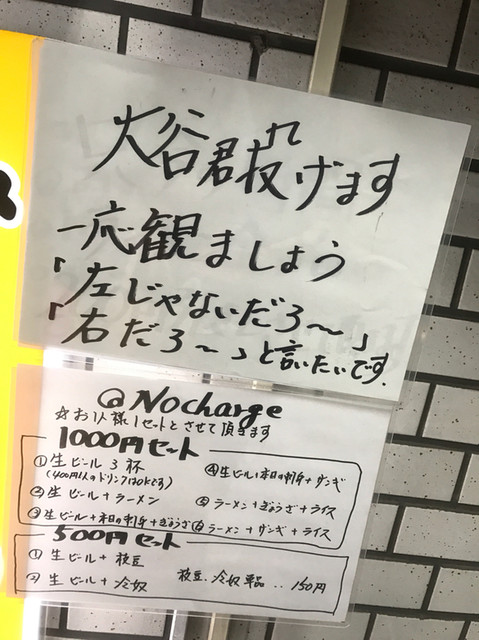 大谷君投げます
一応観ましょう
「左じゃないだろ〜」
「右だろ〜」と言いたいです.
@Nocharge
☆お1人様1セットとさせて頂きます
1000円セット
①生ビール3杯
(400円以内ドリンクはOKです)
②生ビール+ラーメン
③生ビール+本日の刺身+ぎょうざ
④生ビール+本日の刺身+ザンギ
⑤ラーメン+ぎょうざ+ライス
⑥ラーメン+ザンギ+ライス
500円セット
①生ビール+枝豆
②生ビール+冷奴
枝豆.冷奴単品..150円